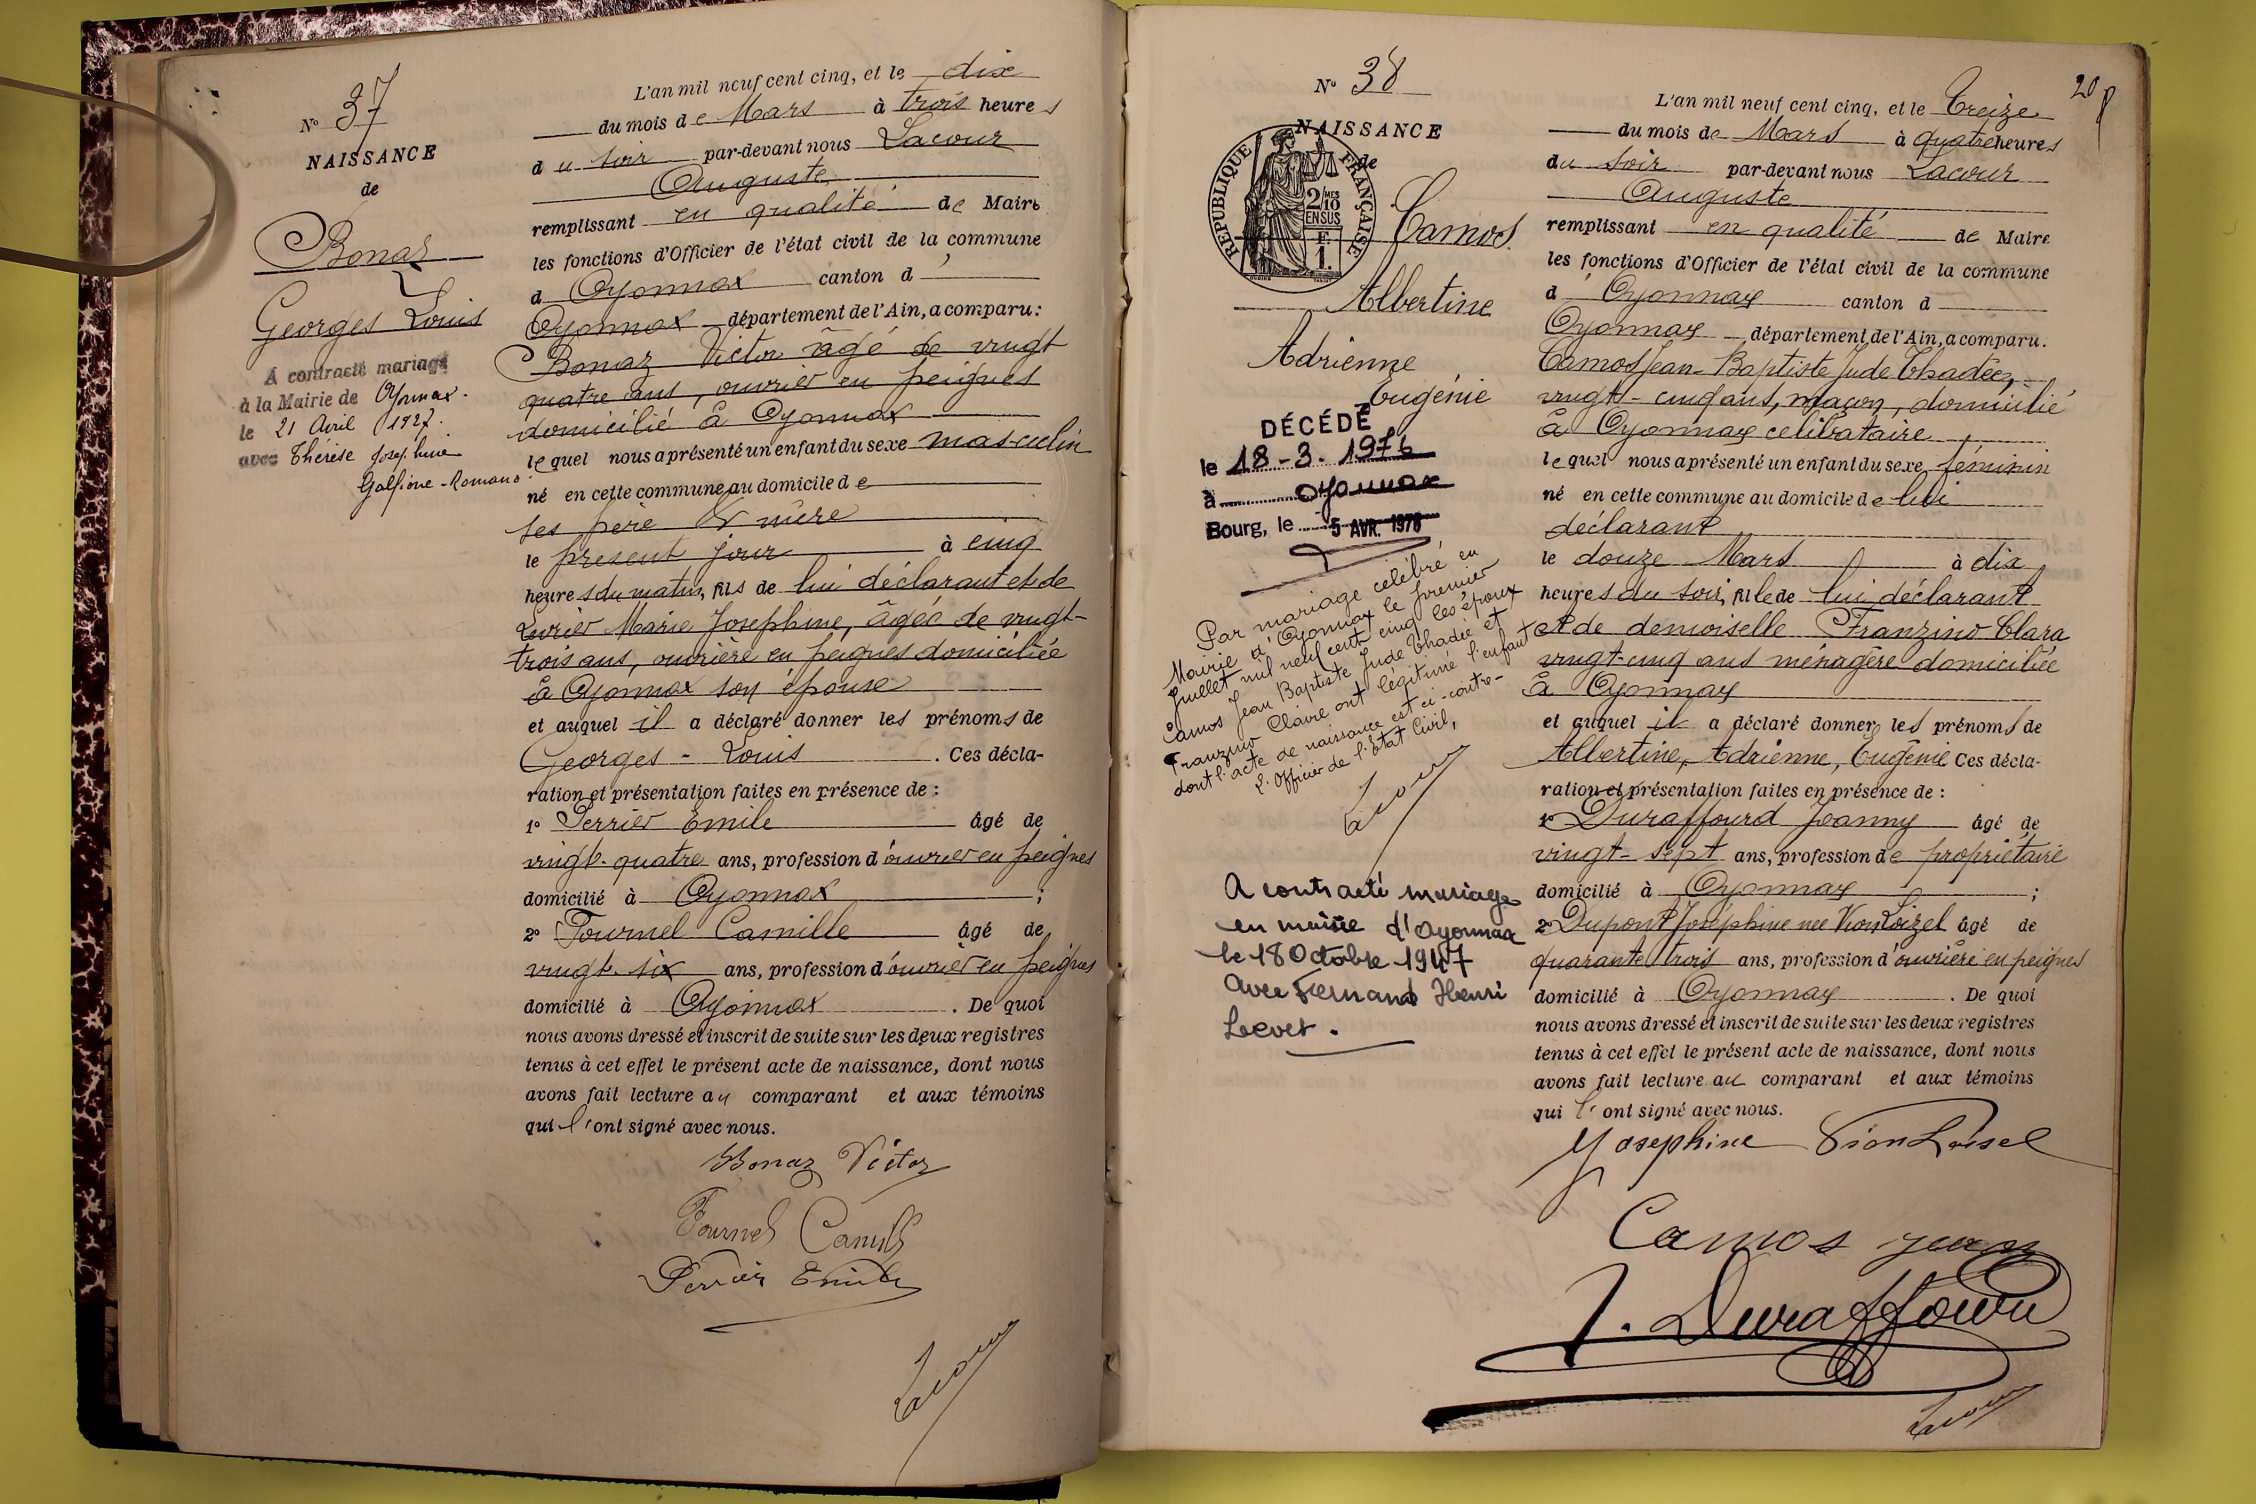 N° 37
NAISSANCE
de
Bonaz
Georges Louis
A contracté mariage
à la Mairie de Oyonnax.
le 21 Avril 1927.
avec Thérèse Joséphine
Golfione-Romano
L'an mil neuf cent cinq, et le dix
du mois de Mars à trois heures
du soir par-devant nous Lacour
Auguste
remplissant en qualité de Maire
les fonctions d'Officier de l'état civil de la commune
d Oyonnax canton d'
Oyonnax département de l'Ain, a comparu:
Bonaz Victor âgé de vingt
quatre ans, ouvrier en peignes
domicilié à Oyonnax
lequel nous a présenté un enfant du sexe masculin
né en cette commune au domicile de
ses père & mère
le présent jour à cinq
heures du matin, fils de lui déclarant et de
Marie Josephine, âgée de vingt-
trois ans, ouvrière en peignes domiciliée
à Oyonnax son épouse
et auquel il a déclaré donner les prénoms de
Georges - Louis. Ces décla-
ration et présentation faites en présence de :
1° Perrier Emile âgé de
vingt-quatre ans, profession d'ouvrier en peignes
domicilié à Oyonnax ;
2° Tournel Camille âgé de
vingt-six ans, profession d'ouvrier en peignes
domicilié à Oyonnax. De quoi
nous avons dressé et inscrit de suite sur les deux registres
tenus à cet effet le présent acte de naissance, dont nous
avons fait lecture au comparant et aux témoins
qui l'ont signé avec nous.
Bonaz Victor
Tournel Camille
Perrier Emile
Lacour
20
N° 38
NAISSANCE
de
RÉPUBLIQUE FRANÇAISE
2/10 MES
EN SUS
F.
1.
Camos
Albertine
Adrienne
Eugénie
DÉCÉDÉ
le 18-3.1976
à Oyonnax
Bourg, le 5 AVR. 1976
Par mariage célébré en
Mairie d'Oyonnax le premier
Juillet mil neuf cent cinq les époux
Camos Jean Baptiste Jude Thadée et
Franzino Claire ont légitimé l'enfant
dont l'acte de naissance est ci-contre-
L'Officier de l'Etat Civil,
Lacour
A contracté mariage
en mairie d'Oyonnax
le 18 Octobre 1947
avec Fernand Henri
Locvet.
L'an mil neuf cent cinq, et le Treize
du mois de Mars à quatre heures
du soir par-devant nous Lacour
Auguste
remplissant en qualité de Maire
les fonctions d'Officier de l'état civil de la commune
d'Oyonnax canton d
Oyonnax, département de l'Ain, a comparu.
Camos Jean-Baptiste Jude Thadée,
vingt-cinq ans, maçon, domicilié
à Oyonnax celibataire
lequel nous a présenté un enfant du sexe féminin
né en cette commune au domicile de lui
déclarant
le douze Mars à dix
heures du soir, fille de lui déclarant
et de demoiselle Franzino Clara
vingt-cinq ans ménagère domiciliée
à Oyonnax
et auquel il a déclaré donner les prénoms de
Albertine, Adrienne, Eugénie Ces décla-
ration et présentation faites en présence de :
1° Duraffourd Joanny âgé de
vingt-sept ans, profession de propriétaire
domicilié à Oyonnax ;
2° Dupont Joséphine née Vion Loizel âgé de
quarante trois ans, profession d'ouvrière en peignes
domicilié à Oyonnax. De quoi
nous avons dressé et inscrit de suite sur les deux registres
tenus à cet effet le présent acte de naissance, dont nous
avons fait lecture au comparant et aux témoins
qui l'ont signé avec nous.
Josephine Vion Loisel
Camos Jean
J. Duraffourd
Lacour